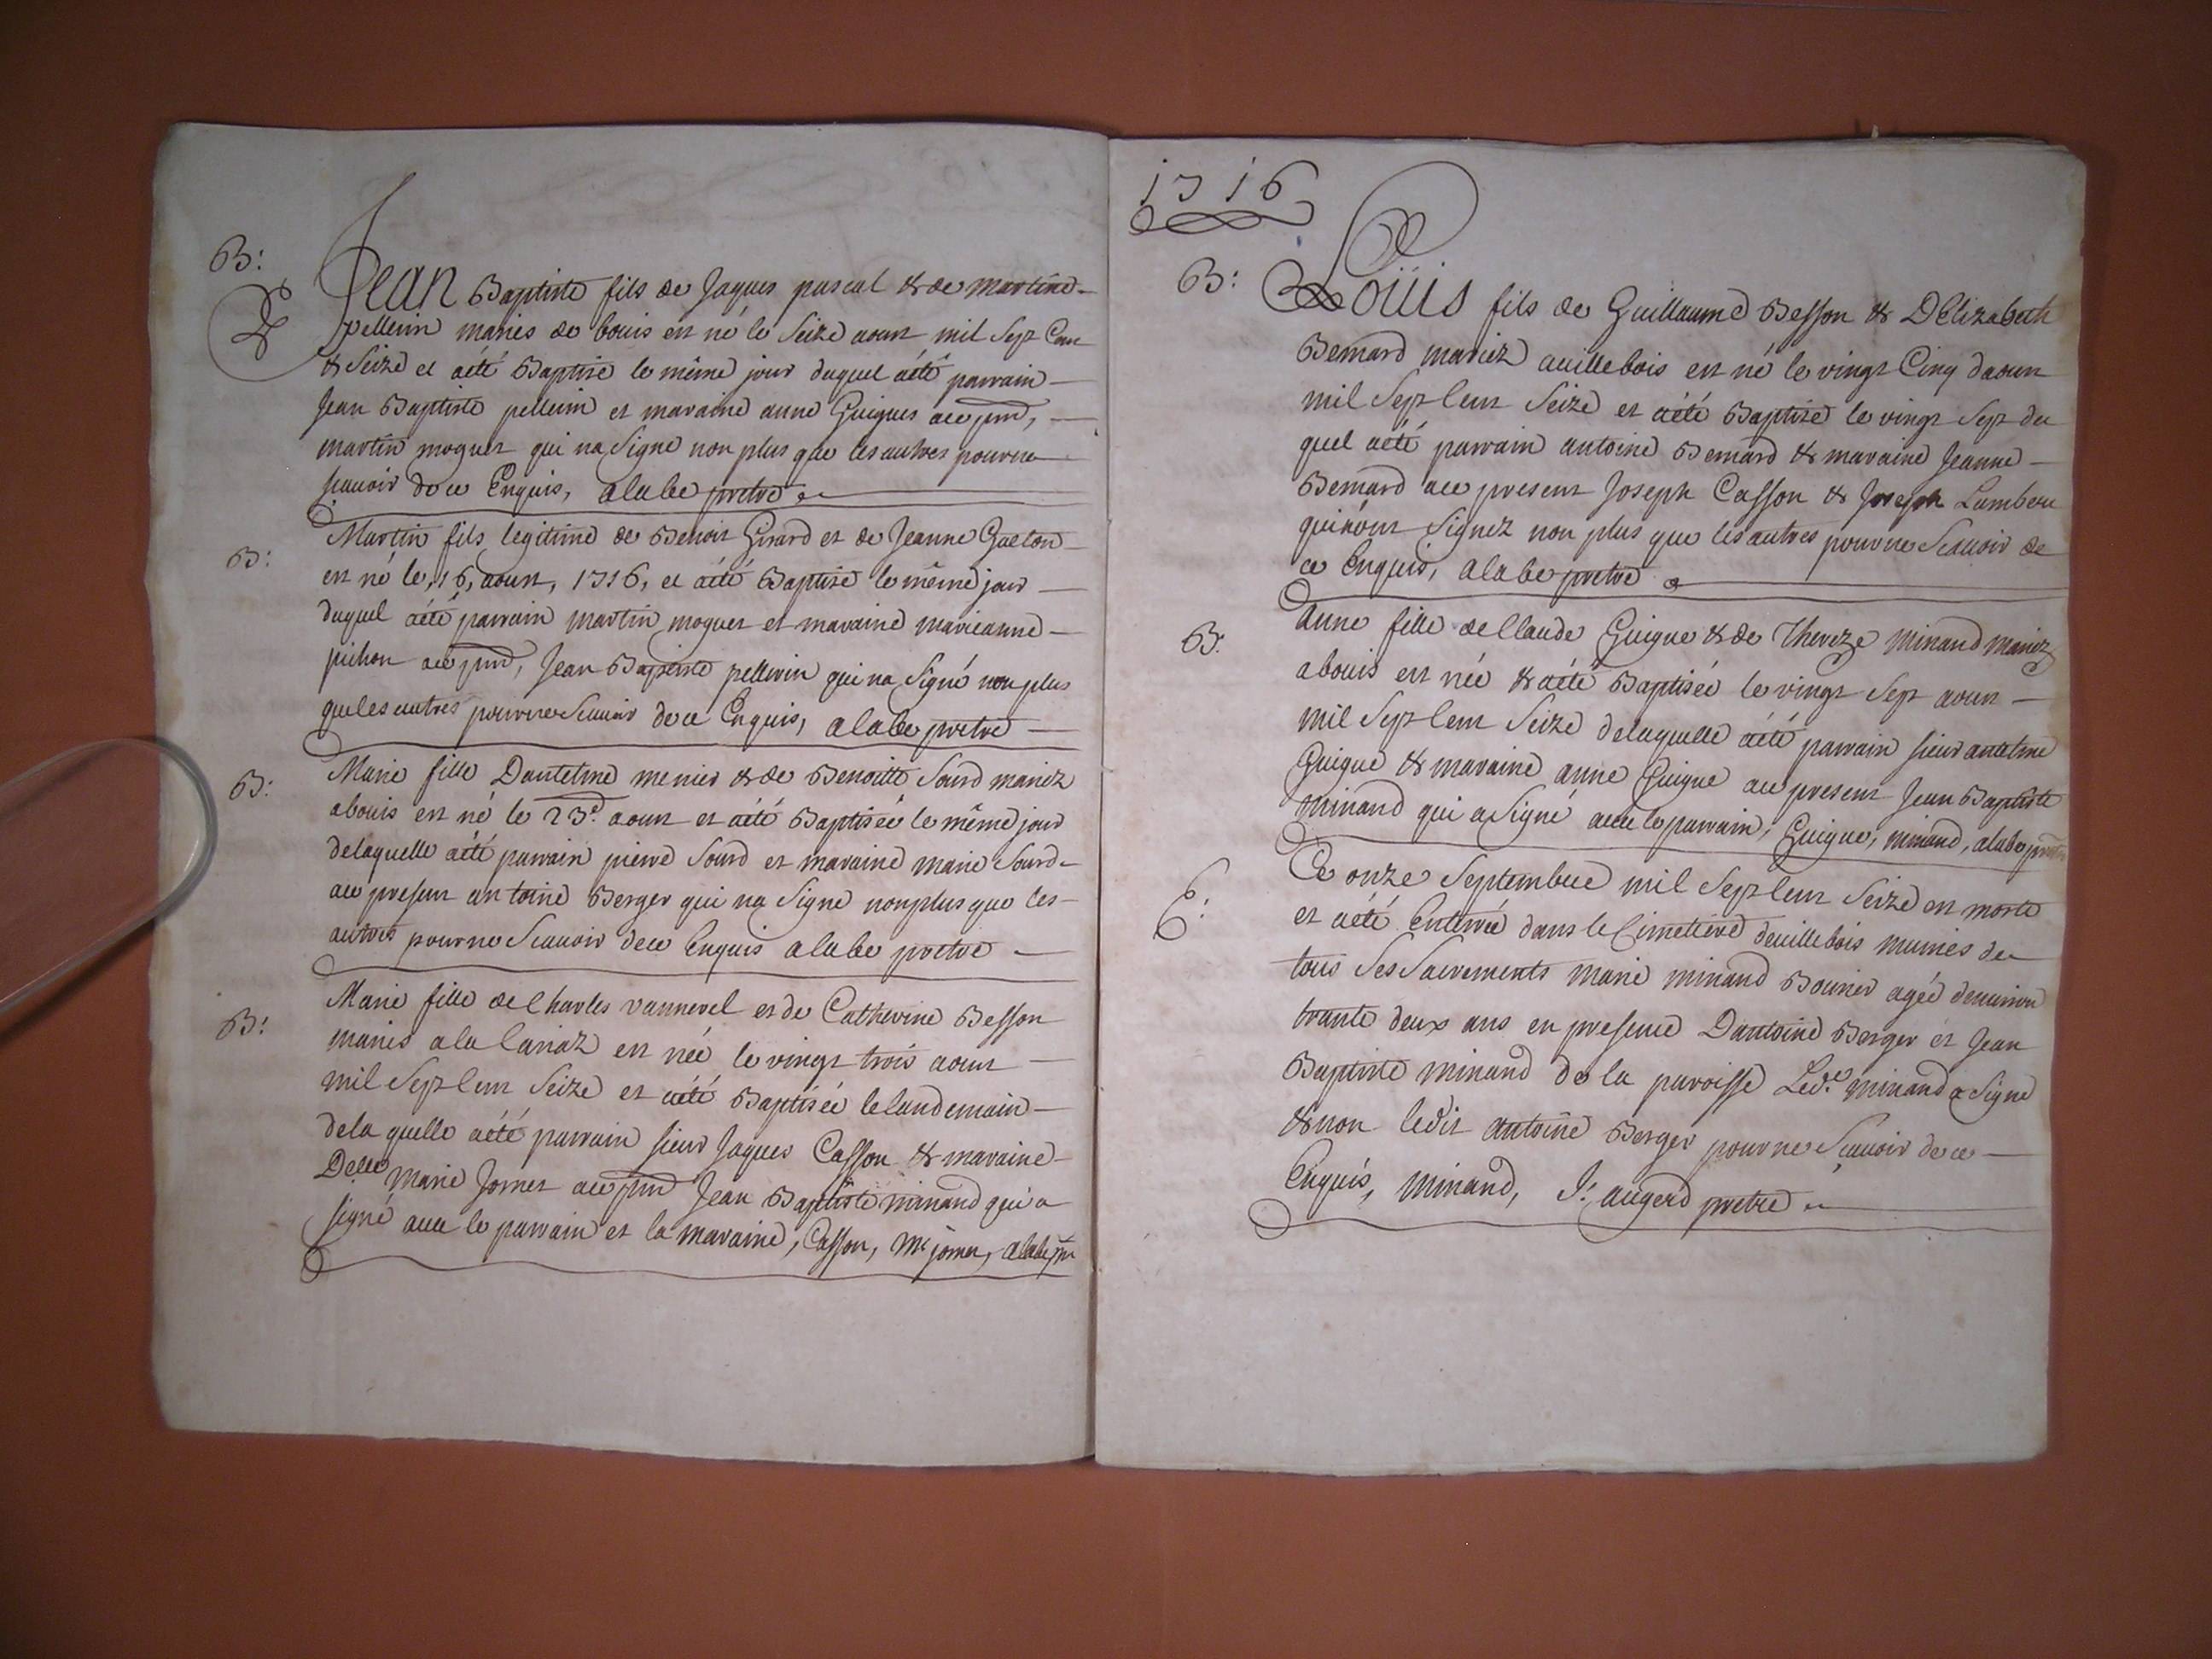 B:
Jean Baptiste fils de Jaques pascal & de martine
pellerin mariés de bouis est né le Seize aoust mil Sept Cent
& Seize et aété Baptisé le même jour duquel aété parrain
Jean Baptiste pellerin et maraine anne Guigues ace pnt,
martin moguet qui na Signe non plus que les autres pour ne
scauoir de ce Enquis, alabe pretre
B:
Martin fils legitime de Benoit Girard et de Jeanne Guelton
est né le, 16, aoust, 1716, et aété Baptisé le même jour
duquel aété parrain martin moguet et maraine marieanne
pichon ace pnt, Jean Baptiste pellerin qui na Signé non plus
que les autres pour ne Scauoir de ce Enquis, alabe pretre
B:
Marie fille Dantelme menier & de Benoitte Sourd mariez
abouis est né le 23e aoust et aété Baptisée le même jour
delaquelle aété parrain pierre Sourd et maraine marie Sourd
ace present antoine Berger qui na Signe non plus que les
autres pour ne Scauoir de ce Enquis alabe pretre
B:
Marie fille de Charles vannerel et de Catherine Besson
mariés ala est née le vingt trois aoust
mil Sept Cent Seize et aété Baptisée le landemain
dela quelle aété parrain sieur Jaques Casson & maraine
Delle Marie Jomet ace pnt Jean Baptiste minand qui a
signé auec le parrain et la maraine, Casson, Me jomet, alabe ptre
1716
B:
Loüis fils de Guillaume Besson & DElizabeth
Bernard mariez auillebois est né le vingt Cinq daoust
mil Sept Cent Seize et aété Baptizé le vingt Sept du
quel aété parrain antoine Bernard & maraine Jeanne
Bernard ace present Joseph Casson & Joseph Lambert
qui nont Signez non plus que les autres pour ne Scauoir de
ce Enquis, alabe pretre
B:
Anne fille de Claude Guigue & de Thereze minand mariez
abouis est née & aété Baptisée le vingt Sept aoust
mil Sept Cent Seize delaquelle aété parrain sieur antelme
Guigue & maraine anne Guigue ace present Jean Baptiste
minand qui a Signé auec le parrain, Guigue, minand, alabe pretre
E:
Ce onze Septembre mil Sept Cent Seize est morte
et aété Enterrée dans le Cimetiere deuillebois munies de
tous Ses Sacrements marie minand Bounier agée denuiron
trante deux ans en presence Dantoine Berger et Jean
Baptiste minand de la paroisse Led.t minand a Signé
& non ledit antoine Berger pour ne Scauoir de ce
Enquis, minand, J. augerd pretre